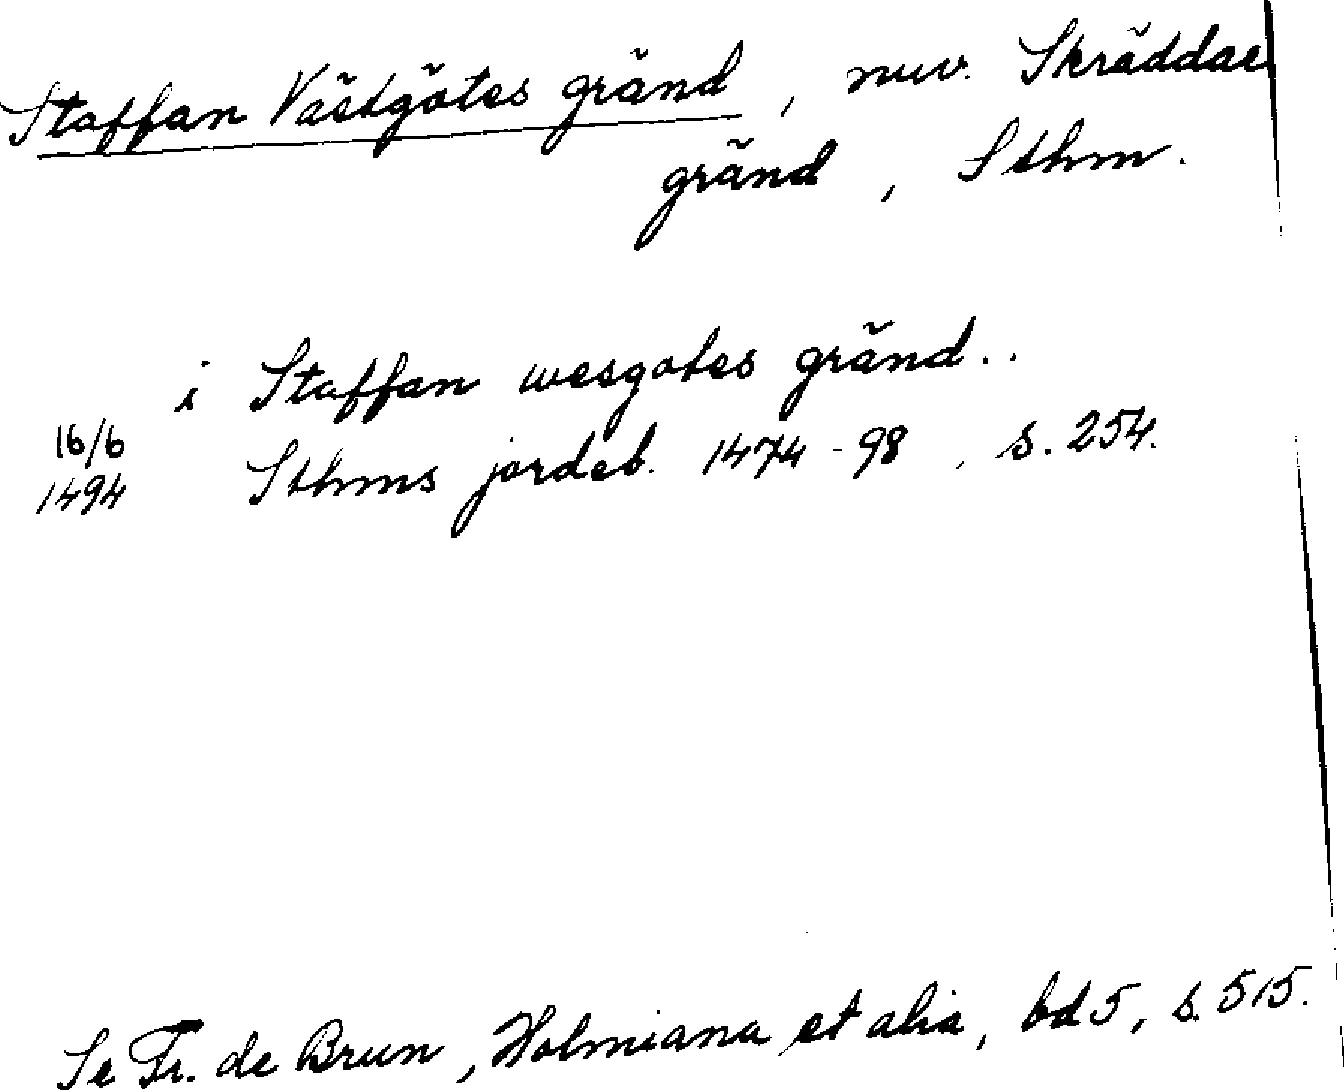 Staffan Västgötes gränd, nuv. Skräddar
gränd, Sthm.
i Staffan wesgotes gränd..
16/6
1494 Sthms jordeb. 1474-98, s. 254.
Se Fr. de Brun, Holmiana et alia, bd 5, s. 515.